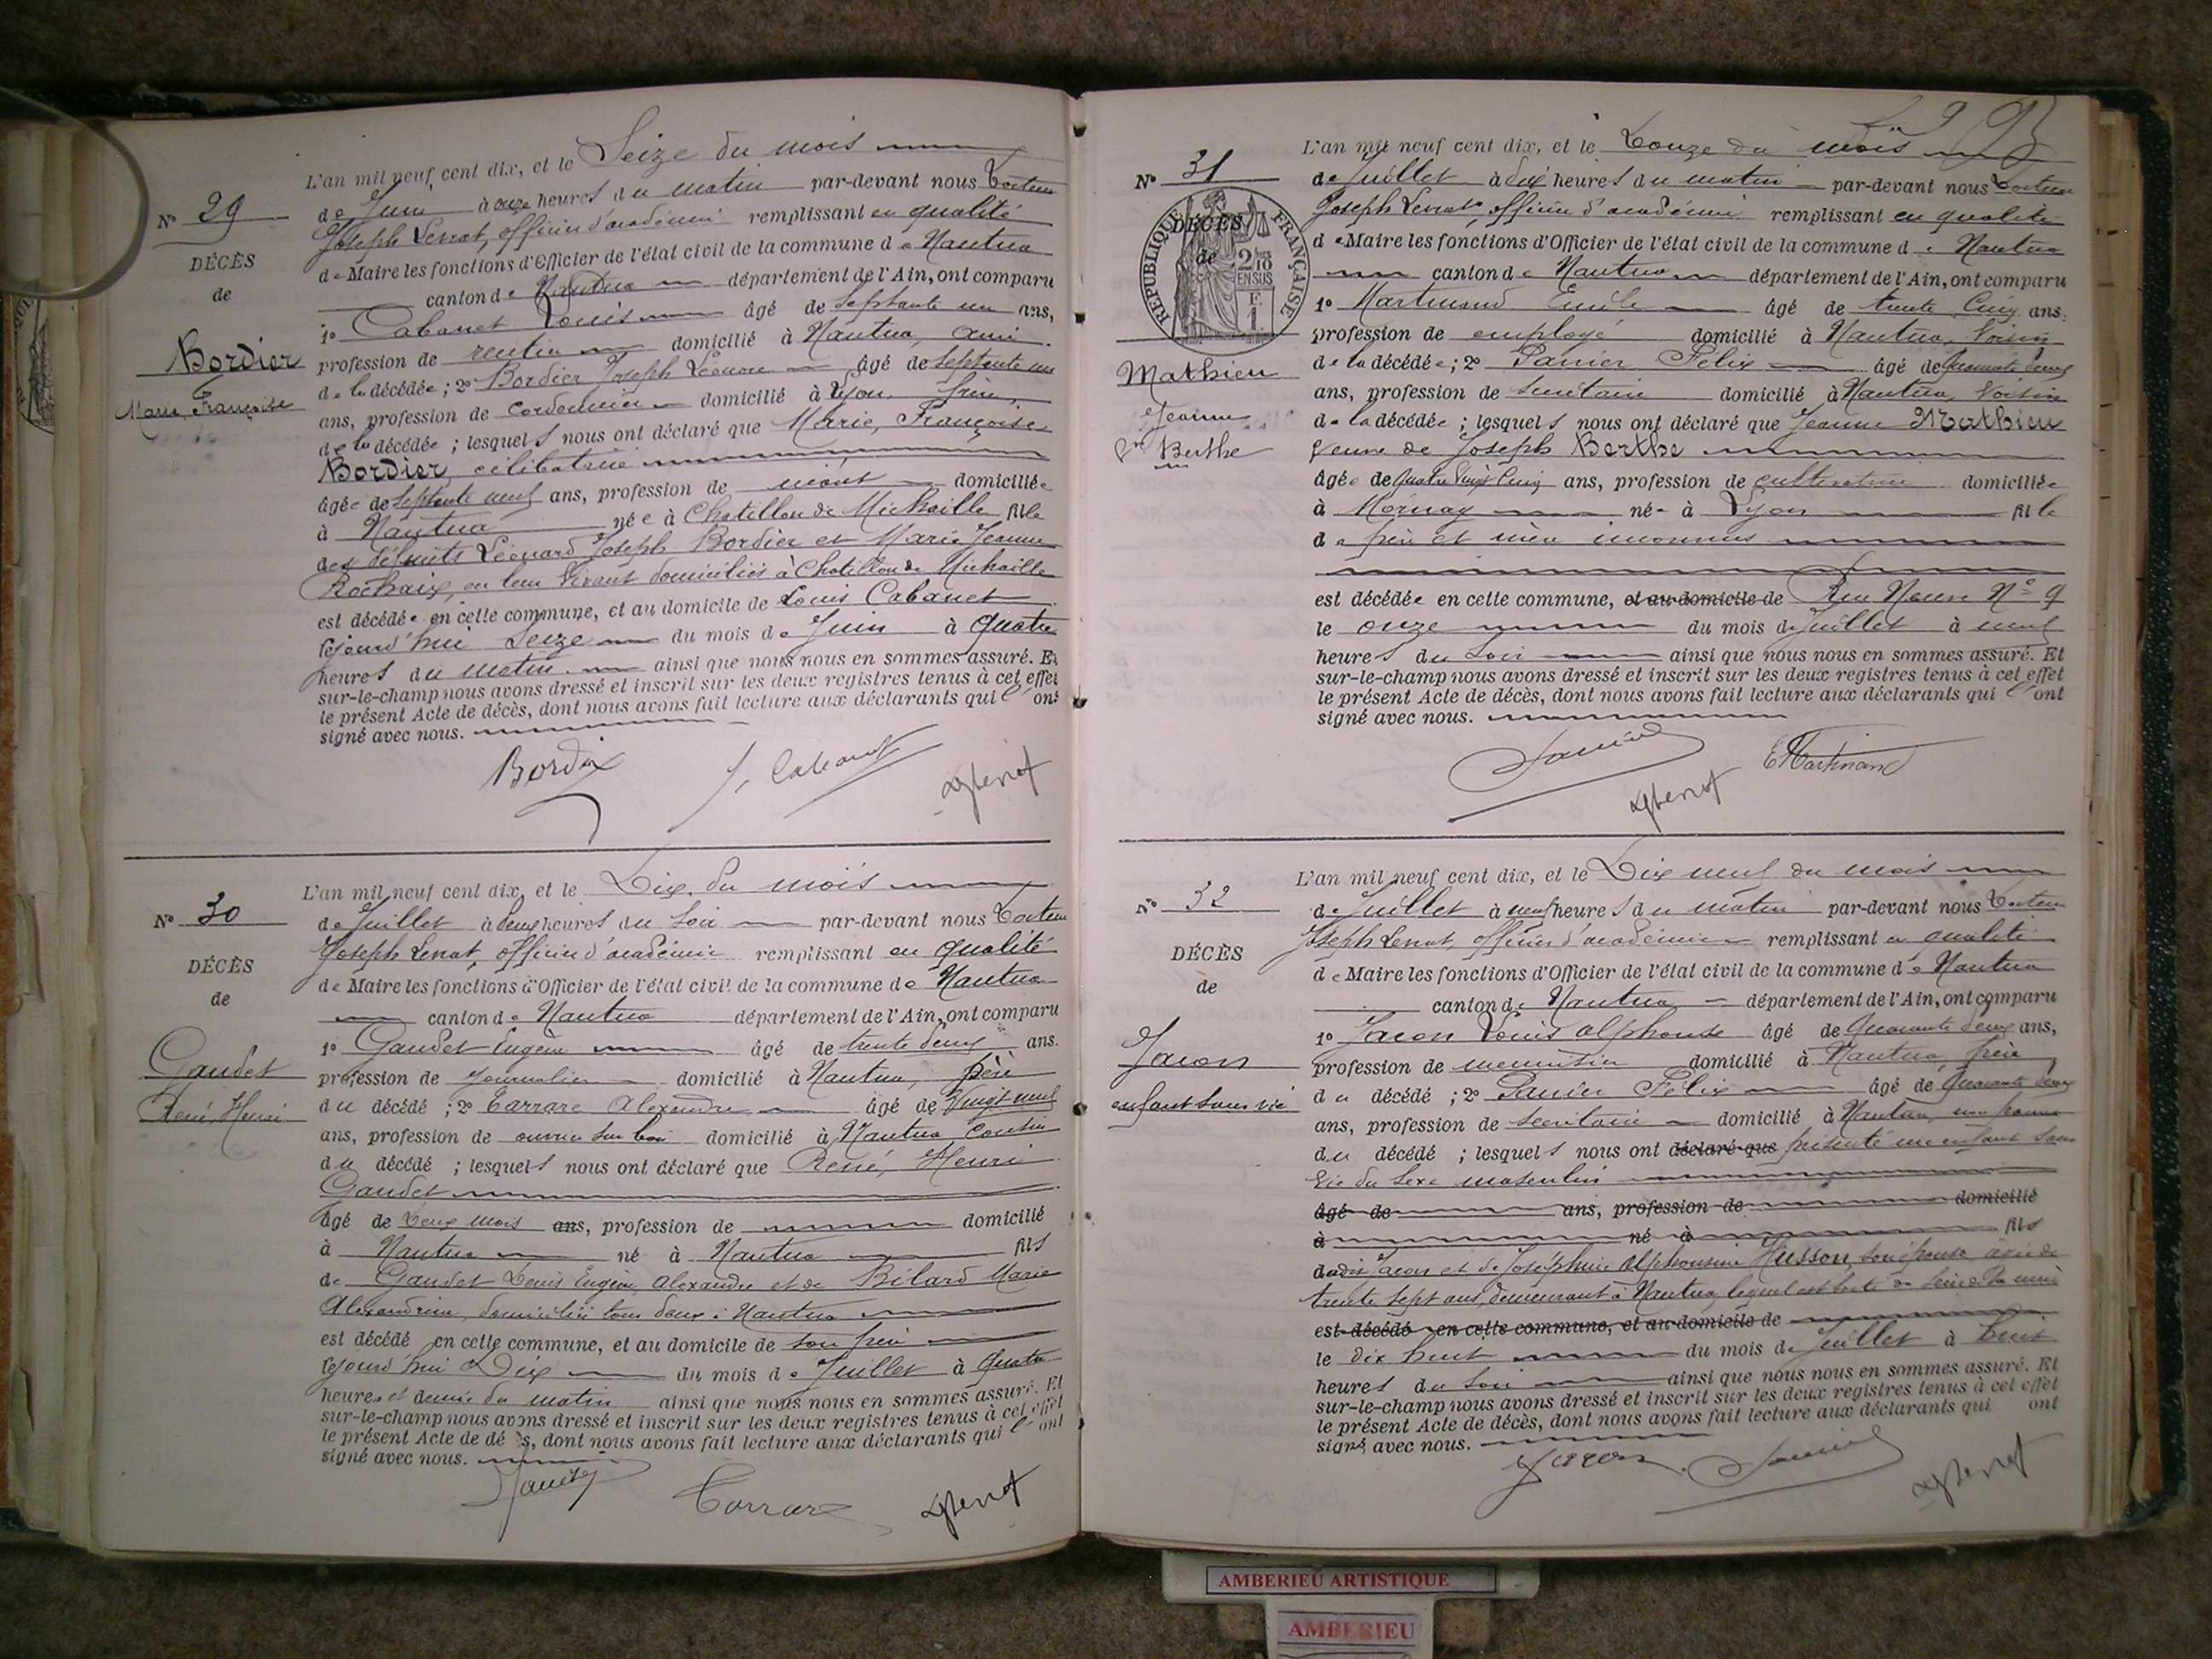 L'an mil neuf cent dix, et le Seize du mois
de Juin à onze heures du matin par-devant nous Docteur
Joseph officier d'académie remplissant en qualité
de Maire les fonctions d'Officier de l'état civil de la commune de Nantua
canton de Nantua département de l'Ain, ont comparu
1º Cabanet Louis âgé de septante un ans,
profession de rentier domicilié à Nantua, ami
de la décédée ; 2º Bordier Joseph Léonard âgé de septante un
ans, profession de cordonnier domicilié à Lyon, frère,
de la décédée ; lesquels nous ont déclaré que Marie, Françoise
Bordier, célibataire
âgée de septante neuf ans, profession de néant domiciliée
à Nantua née à Chatillon de Michaille fille
des défunts Léonard Joseph Bordier et Marie Jeanne
Rochaix, en leur vivant domiciliés à Chatillon de Michaille
est décédée en cette commune, et au domicile de Louis Cabanet
cejourd'hui Seize du mois de Juin à quatre
heures du matin ainsi que nous nous en sommes assuré. Et
sur-le-champ nous avons dressé et inscrit sur les deux registres tenus à cet effet
le présent Acte de décès, dont nous avons fait lecture aux déclarants qui l'ont
signé avec nous.
Nº 29
DÉCÈS
de
Bordier
Marie, Françoise
Bordier
Nº 30
DÉCÈS
de
Gaudet
René, Henri
L'an mil neuf cent dix, et le Dix du mois
de Juillet à deux heures du soir par-devant nous Docteur
Joseph officier d'académie remplissant en qualité
de Maire les fonctions d'Officier de l'état civil de la commune de Nantua
canton de Nantua département de l'Ain, ont comparu
1º Gaudet Eugène âgé de trente deux ans.
profession de journalier domicilié à Nantua, père
du décédé ; 2º Carrare Alexandre âgé de vingt neuf
ans, profession de ouvrier sur bois domicilié à Nantua, cousin
du décédé ; lesquels nous ont déclaré que René, Henri
Gaudet
âgé de deux mois ans, profession de domicilié
à Nantua né à Nantua fils
de Gaudet Denis Eugène Alexandre et de Bilard Marie
Alexandrine, domiciliés tous deux à Nantua
est décédé en cette commune, et au domicile de son père
cejourd'hui Dix du mois de Juillet à quatre
heures et demie du matin ainsi que nous nous en sommes assuré. Et
sur-le-champ nous avons dressé et inscrit sur les deux registres tenus à cet effet
le présent Acte de décès, dont nous avons fait lecture aux déclarants qui l'ont
signé avec nous.
Carrare
Nº 31
DÉCÈS
de
RÉPUBLIQUE FRANÇAISE
2/10 EN SUS
Mathieu
Jeanne
Vve Berthe
L'an mil neuf cent dix, et le Douze du mois
de Juillet à dix heures du matin par-devant nous Docteur
Joseph officier d'académie remplissant en qualité
de Maire les fonctions d'Officier de l'état civil de la commune de Nantua
canton de Nantua département de l'Ain, ont comparu
1º Martinand Emile âgé de trente cinq ans.
profession de employé domicilié à Nantua, voisin
de la décédée ; 2º Panier Félix âgé de quarante deux
ans, profession de secrétaire domicilié à Nantua, voisin
de la décédée ; lesquels nous ont déclaré que Jeanne Mathieu
veuve de Joseph Berthe
âgée de quatre vingt cinq ans, profession de cultivatrice domiciliée
à Mornay née à Lyon fille
de père et mère inconnus
est décédée en cette commune, et au domicile de Rue Neuve Nº 9
le onze du mois de Juillet à neuf
heures du soir ainsi que nous nous en sommes assuré. Et
sur-le-champ nous avons dressé et inscrit sur les deux registres tenus à cet effet
le présent Acte de décès, dont nous avons fait lecture aux déclarants qui l'ont
signé avec nous.
E Martinand
Nº 32
DÉCÈS
de
Jacon
enfant sans vie
L'an mil neuf cent dix, et le Dix neuf du mois
de Juillet à neuf heures du matin par-devant nous Docteur
Joseph officier d'académie remplissant en qualité
de Maire les fonctions d'Officier de l'état civil de la commune de Nantua
canton de Nantua département de l'Ain, ont comparu
1º Jacon Louis Alphonse âgé de quarante deux ans,
profession de menuisier domicilié à Nantua, père
du décédé ; 2º Panier Félix âgé de quarante deux
ans, profession de secrétaire domicilié à Nantua, non parent
du décédé ; lesquels nous ont déclaré que présenté un enfant sans
vie du sexe masculin
âgé de ans, profession de domicilié
à né à fils
dudit Jacon et de Joséphine Alphonsine Husson, son épouse, âgée de
trente sept ans, demeurant à Nantua, lequel est sorti du sein de sa mère
est décédé en cette commune, et au domicile de
le dix huit du mois de Juillet à huit
heures du soir ainsi que nous nous en sommes assuré. Et
sur-le-champ nous avons dressé et inscrit sur les deux registres tenus à cet effet
le présent Acte de décès, dont nous avons fait lecture aux déclarants qui ont
signé avec nous.
Jacon
AMBERIEU ARTISTIQUE
AMBERIEU